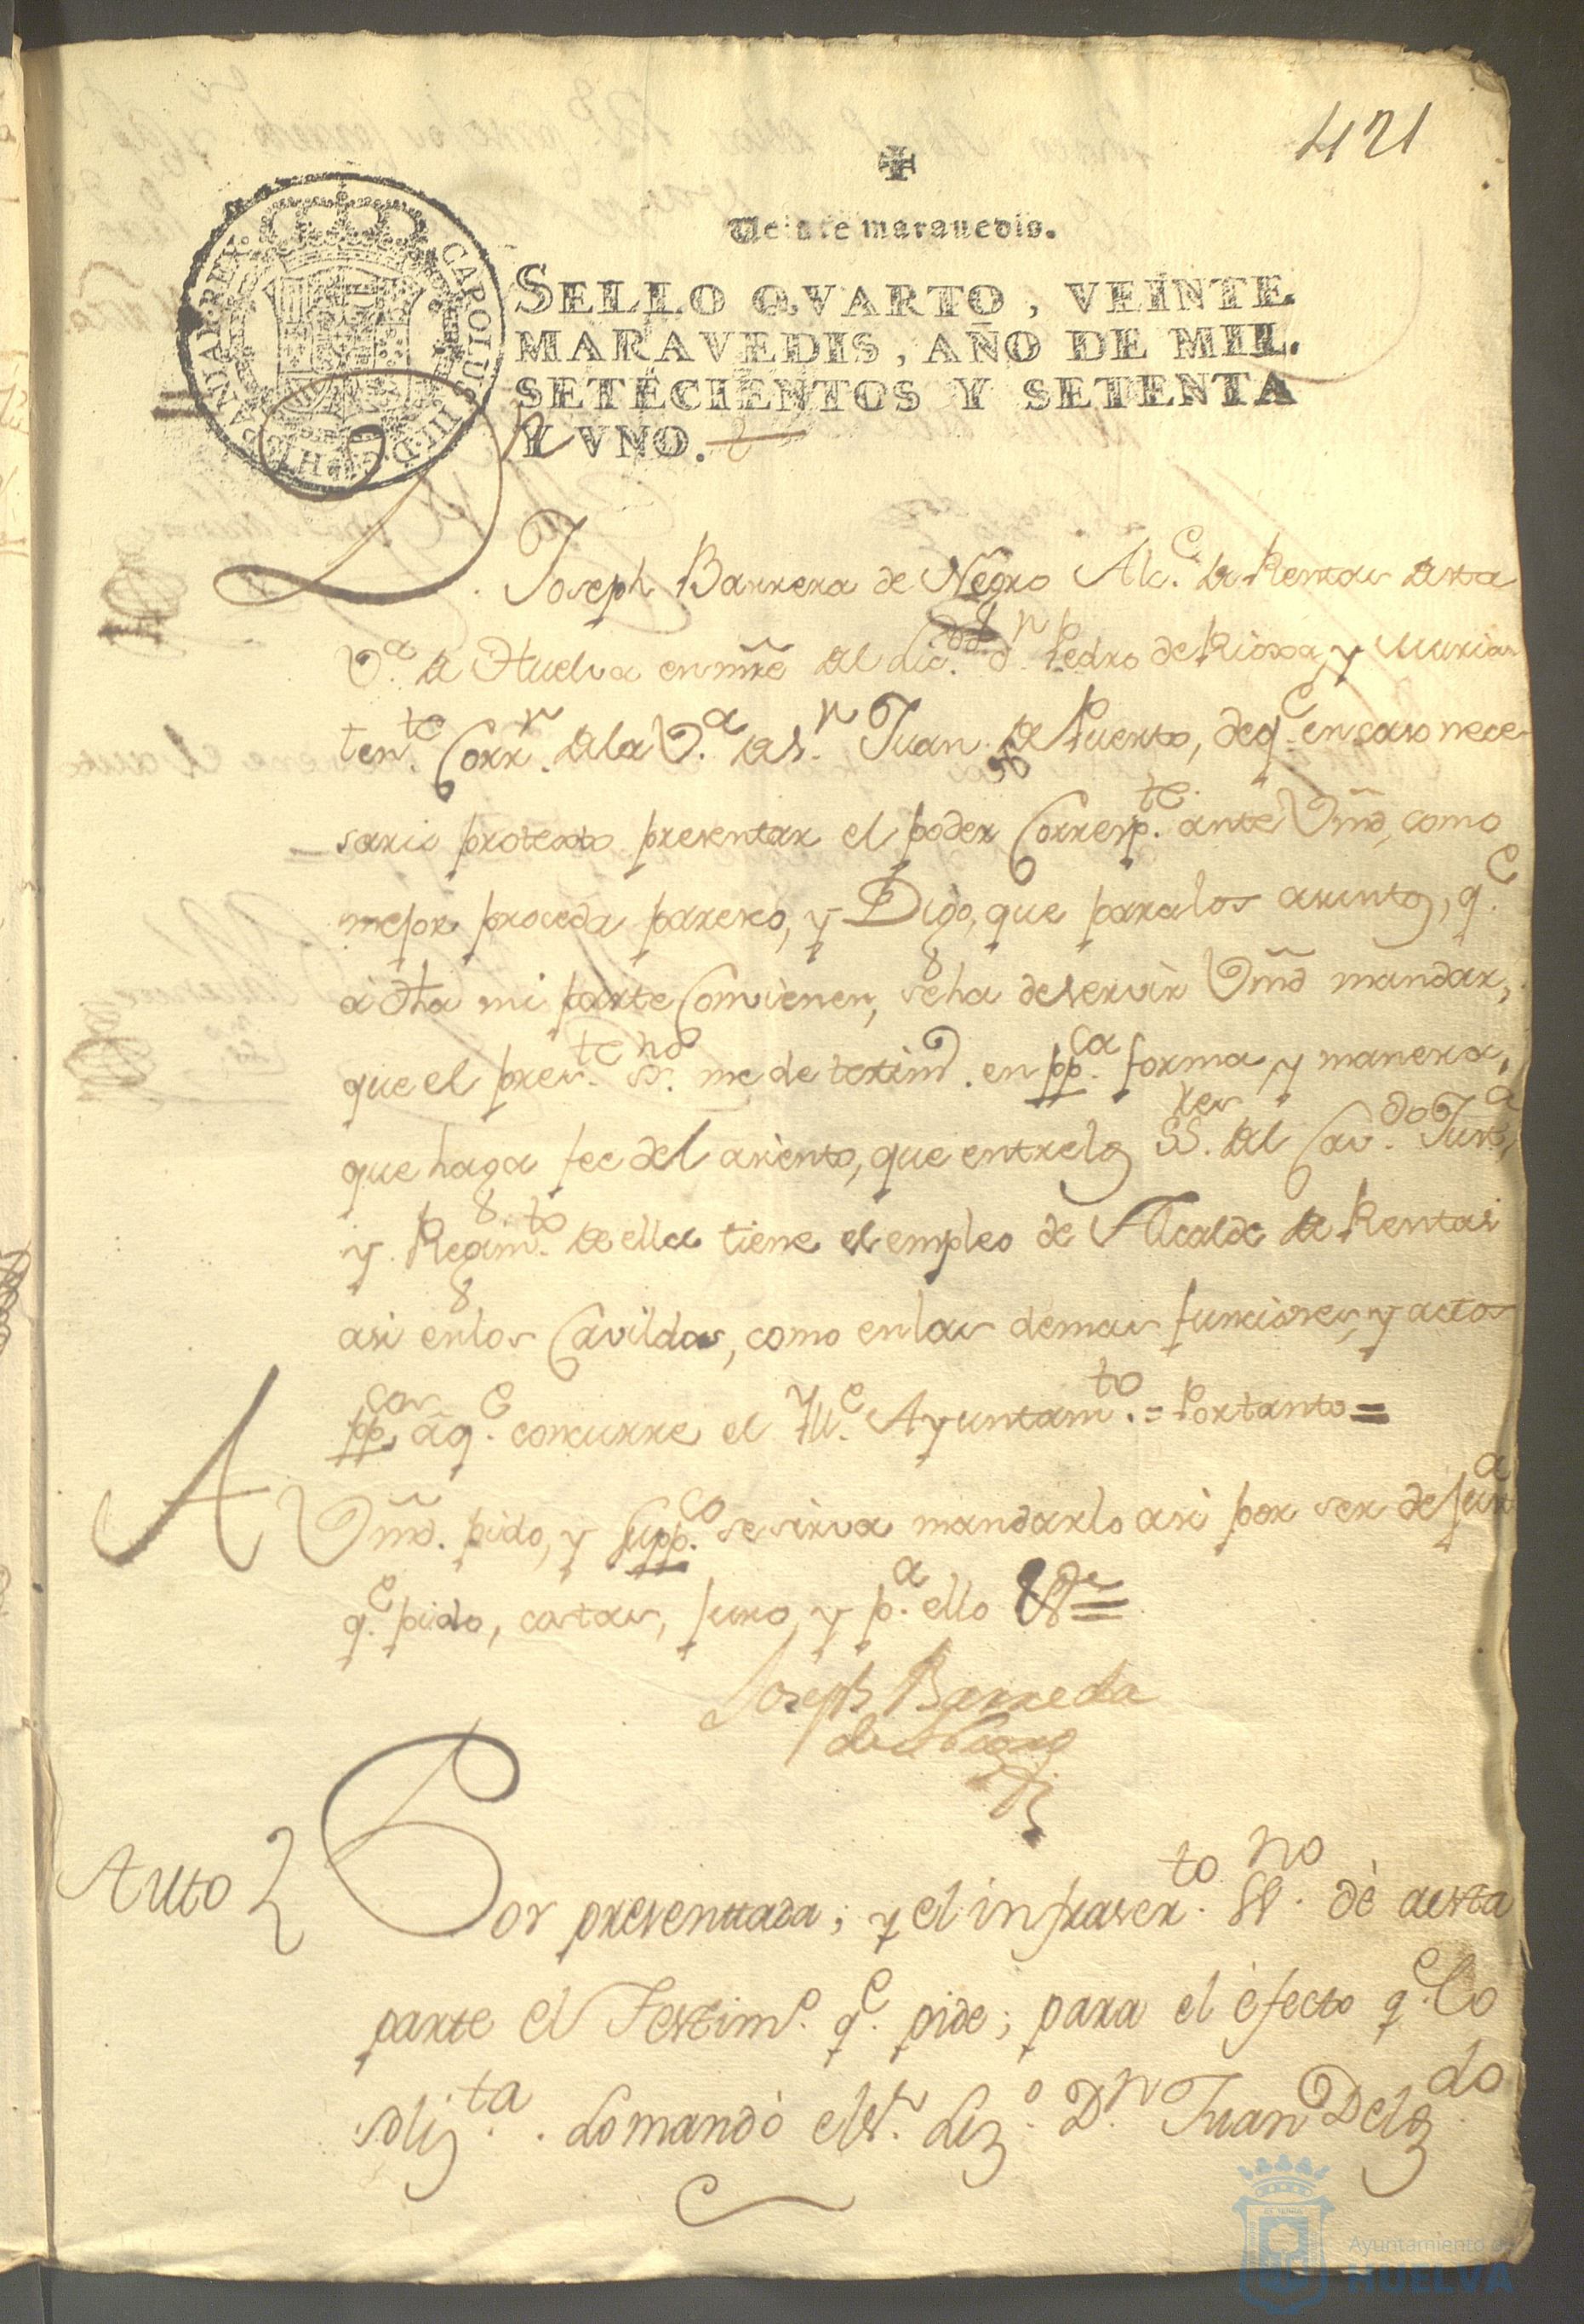 421
Veinte maravedis.
SELLO QVARTO, VEINTE
MARAVEDIS, AÑO DE MIL
SETECIENTOS Y SETENTA
Y VNO.
CAROLUS III. D. G. HISPANIAR. REX.
Dn. Joseph Barrera de Negro Alc.e de Rentas desta
V.a de Huelva en nre del Lic.do d.n Pedro de Rioxa, y
ten.te Corr.r de la V.a de S.n Juan del Puerto, de q.e en caso nece-
sario protexto presentar el poder Corresp.te ante Vmd, como
mejor proceda paresco, y Digo, que para los asuntos, q.e
à dha mi parte Combienen, se ha de servir Vmd mandar,
que el pres.te ss.no me de testim.o en pp.ca forma, y manera,
que haga fee del asiento, que entre los SS.res del Cav.do Just.a
y Regim.to de ella tiene el empleo de Alcalde de Rentas
asi en los Cavildos, como en las demas funciones, y actos
pp.cos à q.e concurre el Ill.e Ayuntam.to = Por tanto =
A Vmd. pido, y supp.co se sirva mandarlo asi por ser de Just.a
q.e pido, costas, juro, y p.a ello &.a =
Joseph Barreda
de Negro
Auto
Por presentada; y el infrascr.to ss.no dè a esta
parte el Testim.o q.e pide; para el efecto q.e lo
soliz.ta. Lo mandò el S.r Liz.do D.n Juan Delg.do
Ayuntamiento de
HUELVA